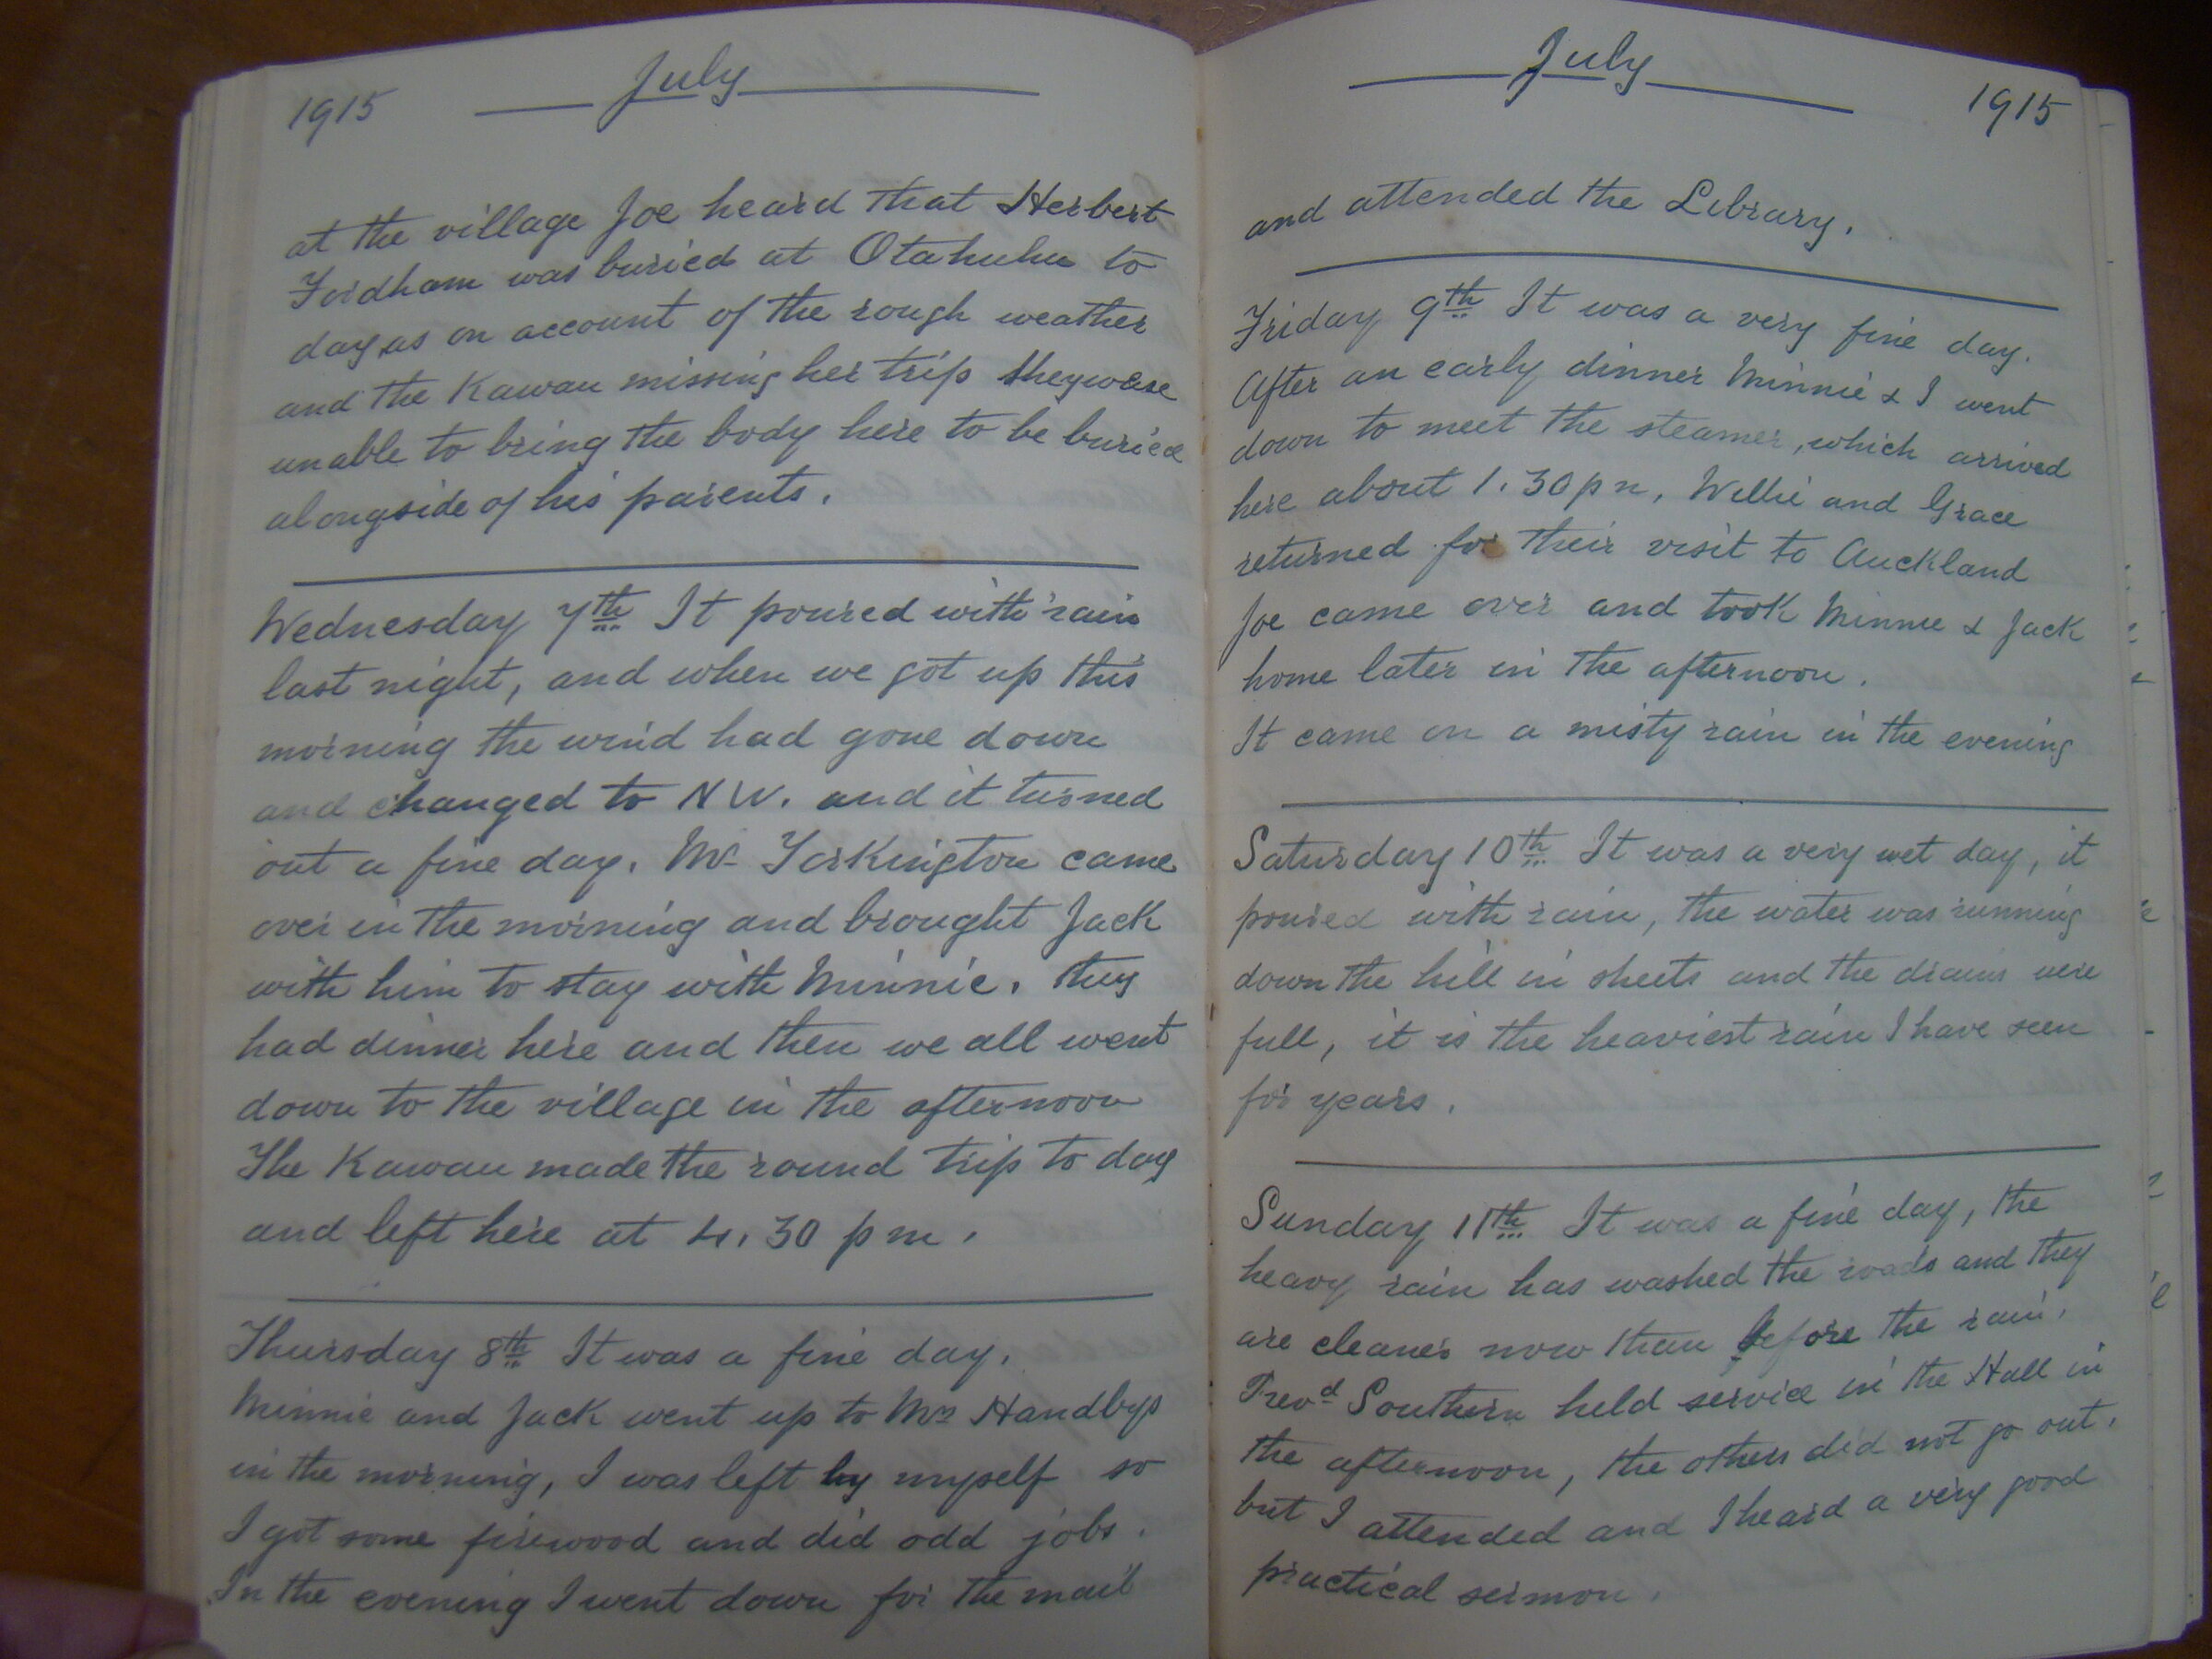 1915
July
at the village Joe heard that Herbert
Fordham was buried at Otahuhu to
day, as on account of the rough weather
and the Kawau missing her trip they were
unable to bring the body here to be buried
alongside of his parents.
Wednesday 7th It poured with rain
last night, and when we got up this
morning the wind had gone down
and changed to NW. and it turned
out a fine day. Mr Torkington came
over in the morning and brought Jack
with him to stay with Minnie. They
had dinner here and then we all went
down to the village in the afternoon
The Kawau made the round trip to day
and left here at 4.30 pm.
Thursday 8th It was a fine day.
Minnie and Jack went up to Mrs Handbys
in the morning, I was left by myself so
I got some firewood and did odd jobs.
In the evening I went down for the mail
July
1915
and attended the Library.
Friday 9th It was a very fine day.
After an early dinner Minnie & I went
down to meet the steamer, which arrived
here about 1.30 pm, Willie and Grace
returned for their visit to Auckland
Joe came over and took Minnie & Jack
home later in the afternoon.
It came on a misty rain in the evening
Saturday 10th It was a very wet day, it
poured with rain, the water was running
down the hill in sheets and the drains were
full, it is the heaviest rain I have seen
for years.
Sunday 11th It was a fine day, the
heavy rain has washed the roads and they
are cleaner now than before the rain.
Revd Southern held service in the Hall in
the afternoon, the others did not go out.
but I attended and I heard a very good
practical sermon.